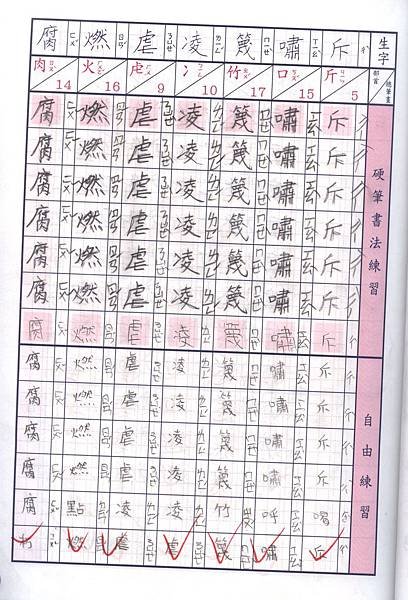 生字 部首 總筆畫 硬筆書法練習 自由練習
斥 ㄔˋ 斤 ㄐㄧㄣ 5 斥 斥 斥 斥 斥 斥 斥 斥 斥 斥 斥 喝 斥
嘯 ㄒㄧㄠˋ 口 ㄎㄡˇ 15 嘯 嘯 嘯 嘯 嘯 嘯 嘯 嘯 嘯 嘯 嘯 呼 嘯
篾 ㄇㄧㄝˋ 竹 ㄓㄨˊ 17 篾 篾 篾 篾 篾 篾 篾 篾 篾 篾 篾 竹 篾
凌 ㄌㄧㄥˊ 冫 ㄅㄧㄥ 10 凌 凌 凌 凌 凌 凌 凌 凌 凌 凌 凌 凌 虐
虐 ㄋㄩㄝˋ 虍 ㄏㄨ 9 虐 虐 虐 虐 虐 虐 虐 虐 虐 虐 虐 虐
燃 ㄖㄢˊ 火 ㄏㄨㄛˇ 16 燃 燃 燃 燃 燃 燃 燃 燃 燃 燃 燃 點 燃
腐 ㄈㄨˇ 肉 ㄖㄡˋ 14 腐 腐 腐 腐 腐 腐 腐 腐 腐 腐 腐 腐